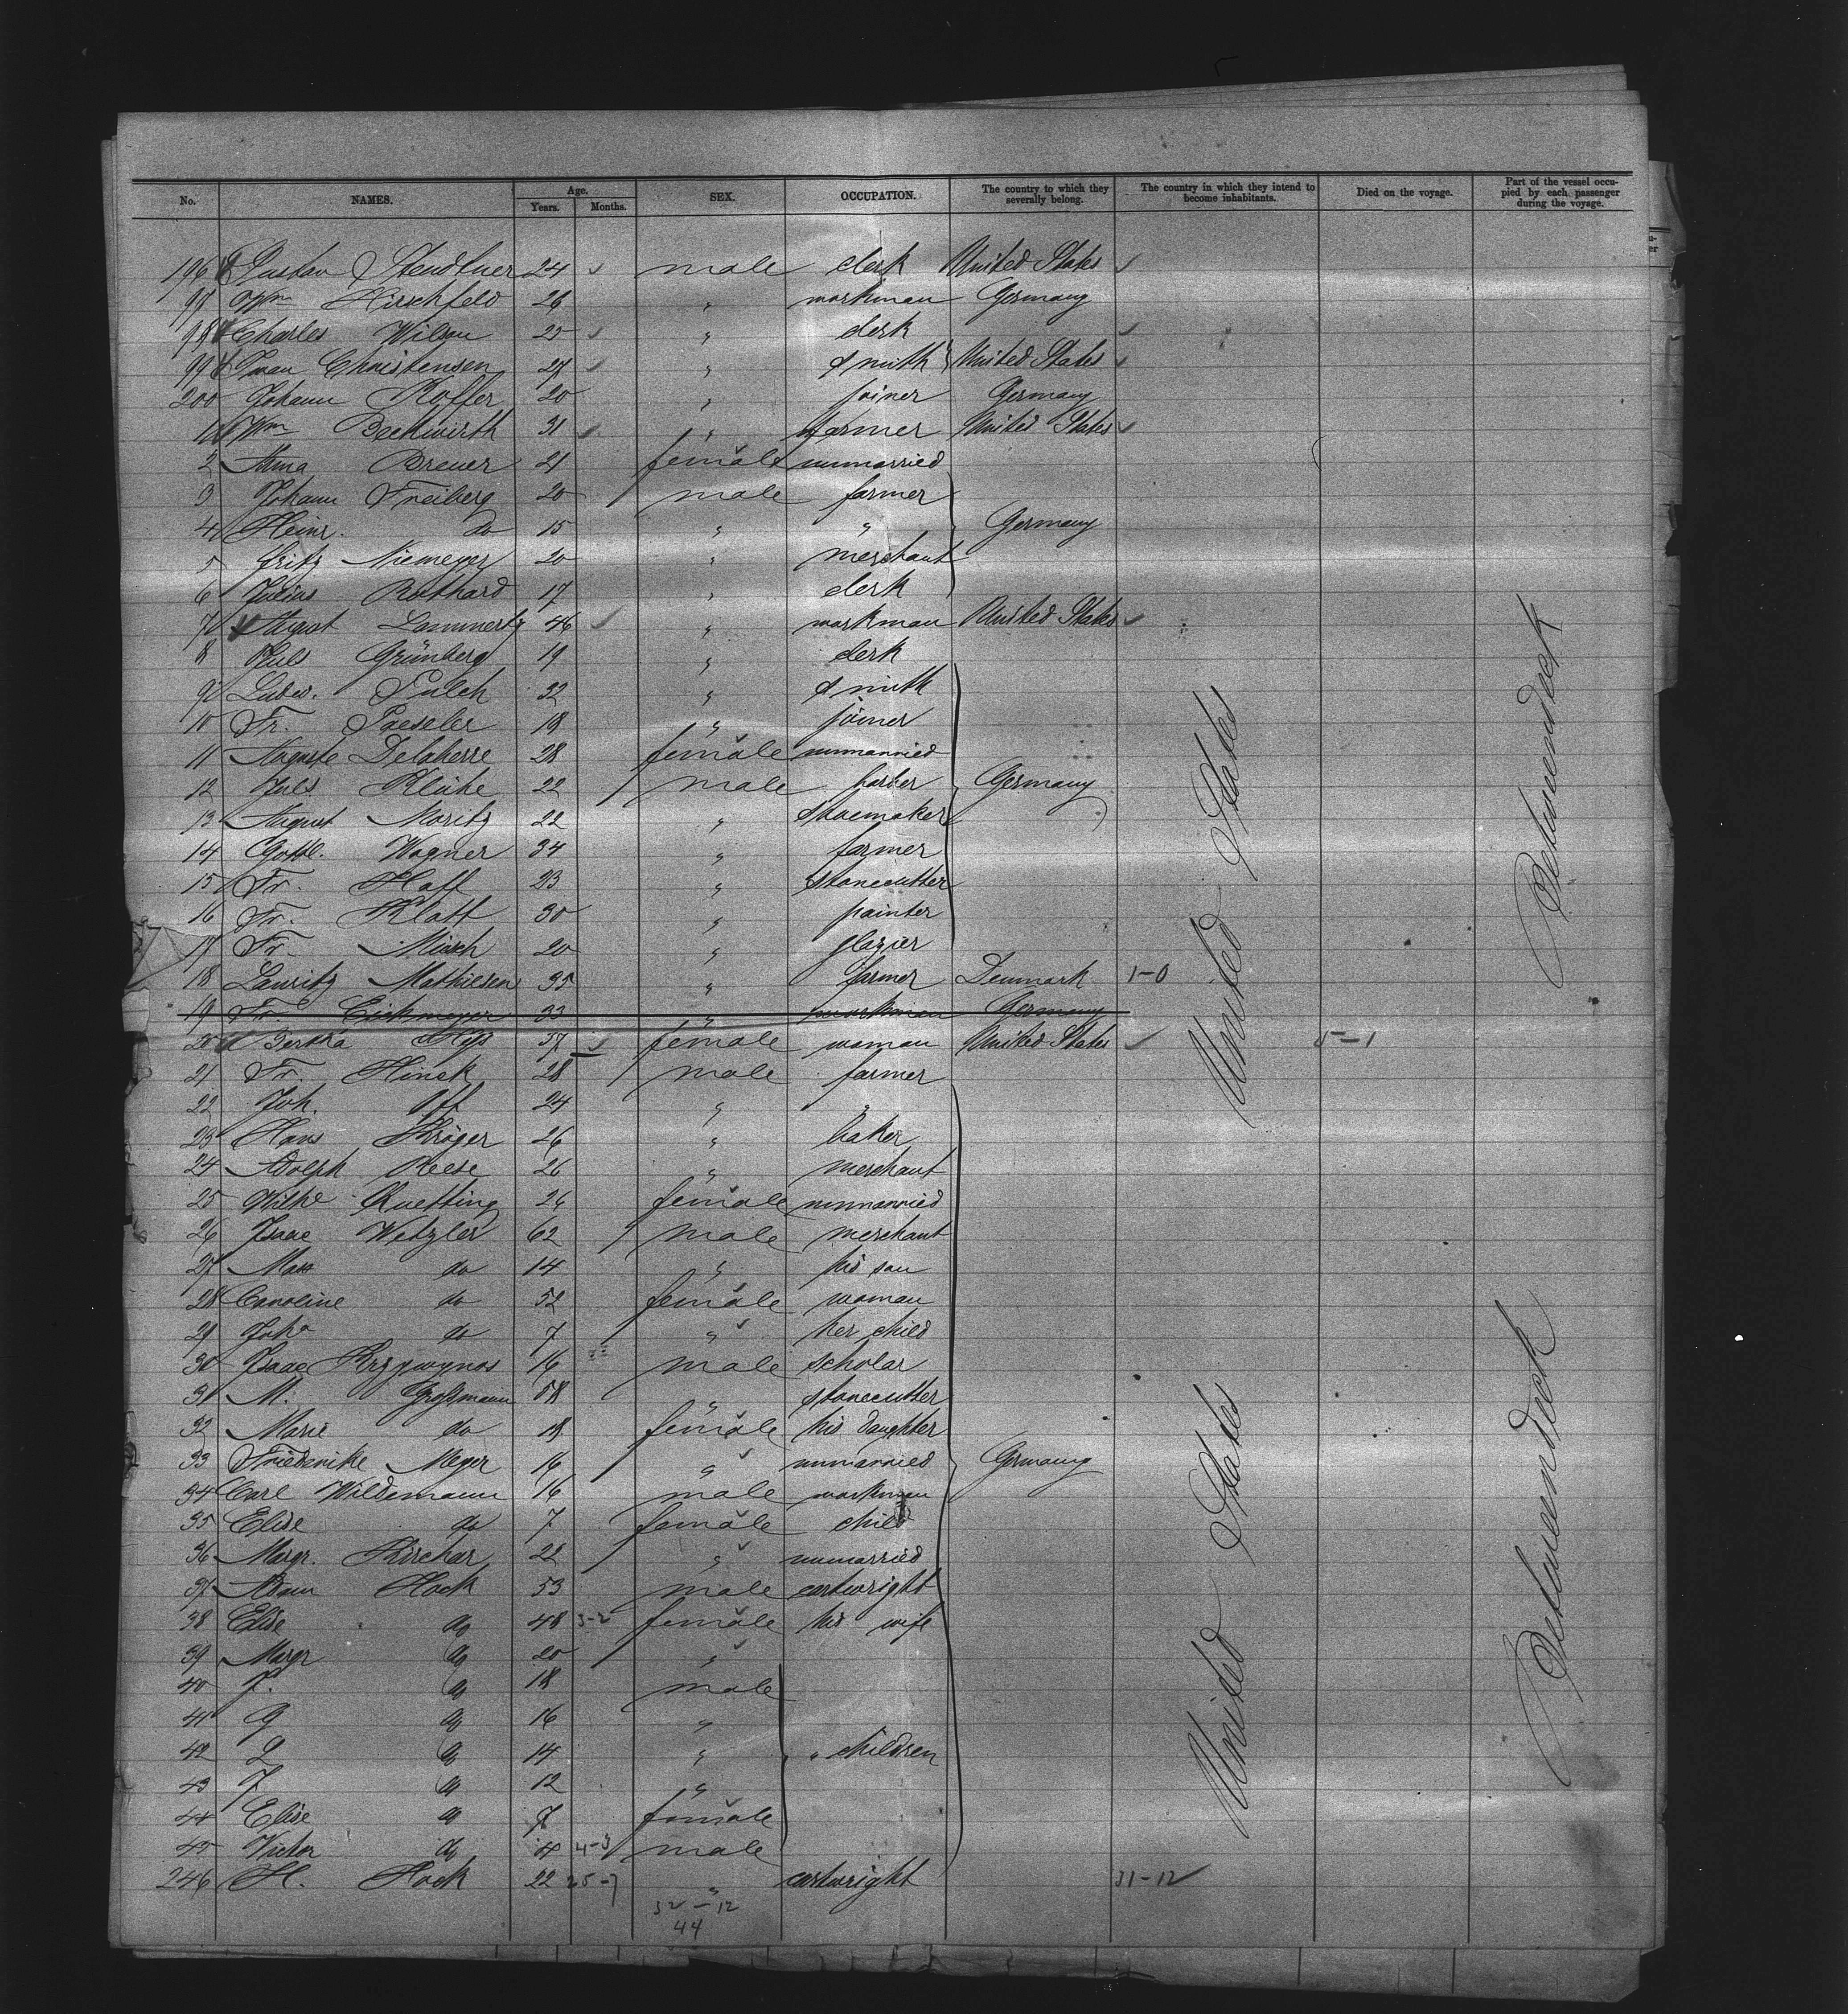 No. NAMES. Age. Years. Months. SEX. OCCUPATION. The country to which they severally belong. The country in which they intend to become inhabitants. Died on the voyage. Part of the vessel occupied by each passenger during the voyage.
196 Gustav Stendtner 24 male clerk United States
97 Wm Hirschfeld 26 " workman Germany
98 Charles Wilson 25 " clerk
99 Iwan Christensen 27 " smith United States
200 Johann Koffer 20 " joiner Germany
1 Wm Beckwirth 31 " farmer United States
2 Anna Breuer 21 female unmarried
3 Johann Freiberg 20 male farmer
4 Heinr. do 15 " " Germany
5 Fritz Niemeyer 20 " merchant
6 Julius Rothard 17 " clerk
7 August Lammertz 46 " workman United States
8 Juls Grünberg 19 " clerk
9 Ludw. Pulch 32 " smith
10 Fr. Paeseler 18 " joiner
11 Auguste Delaherre 28 female unmarried
12 Juls Klühe 22 male barber Germany
13 August Moritz 22 " shoemaker
14 Gottl. Wagner 34 " farmer
15 Fr. Haff 23 " stonecutter
16 Fr. Klatt 30 " painter
17 Fr. Mirsch 20 " glazier
18 Lauritz Mathiesen 35 " farmer Denmark 1-0
19 Fr. Eickmeyer 33 " workman Germany
20 Bertha 37 female woman United States 5-1
21 Fr. Hinck 28 male farmer
22 Joh. Off 24 " "
23 Hans Kröger 26 " baker
24 Adolph Reese 26 " merchant
25 Wilhe Ruetting 26 female unmarried
26 Isaac Wetzler 62 male merchant
27 Max do 14 " his son
28 Caroline do 52 female woman
29 Joha do 7 " her child
30 Isaac Krzywynos 16 male scholar
31 M. Großmann 58 " stonecutter
32 Marie do 18 female his daughter
33 Friederike Meyer 16 " unmarried Germany
34 Carl Wildemann 16 male workman
35 Elise do 7 female child
36 Margr. Kircher 22 " unmarried
37 Adam Hock 53 male cartwright
38 Elise do 48 3-2 female his wife
39 Margr do 20 "
40 J. do 18 male
41 G do 16 "
42 L do 14 " " children
43 J do 12 "
44 Elise do 7 female
45 Victor do 4 4-3 male
246 H. Hock 22 25-7 " cartwright 31-12
32-12
44
United States
United States
Betweendeck
Betweendeck